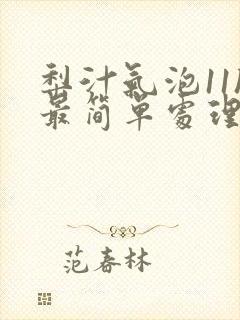 梨汁氣泡11
最简單處理
范春林